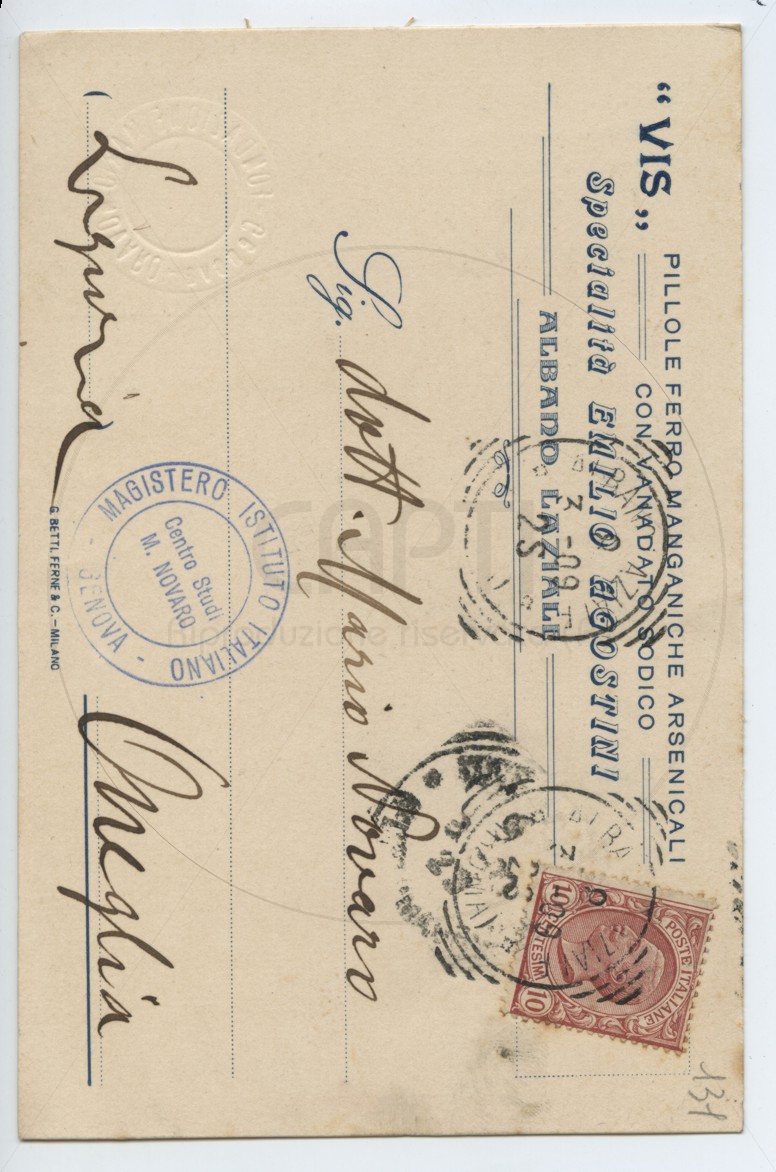 “VIS„
PILLOLE FERRO MANGANICHE ARSENICALI
CON VANADATO SODICO
Specialità EMILIO AGOSTINI
ALBANO LAZIALE
Sig. dott. Mario Novaro
Oneglia
Liguria
POSTE ITALIANE
10 CENTESIMI 10
MAGISTERO ISTITUTO ITALIANO
- GENOVA -
Centro Studi
M. NOVARO
G. BETTI, FERNE & C. - MILANO
131